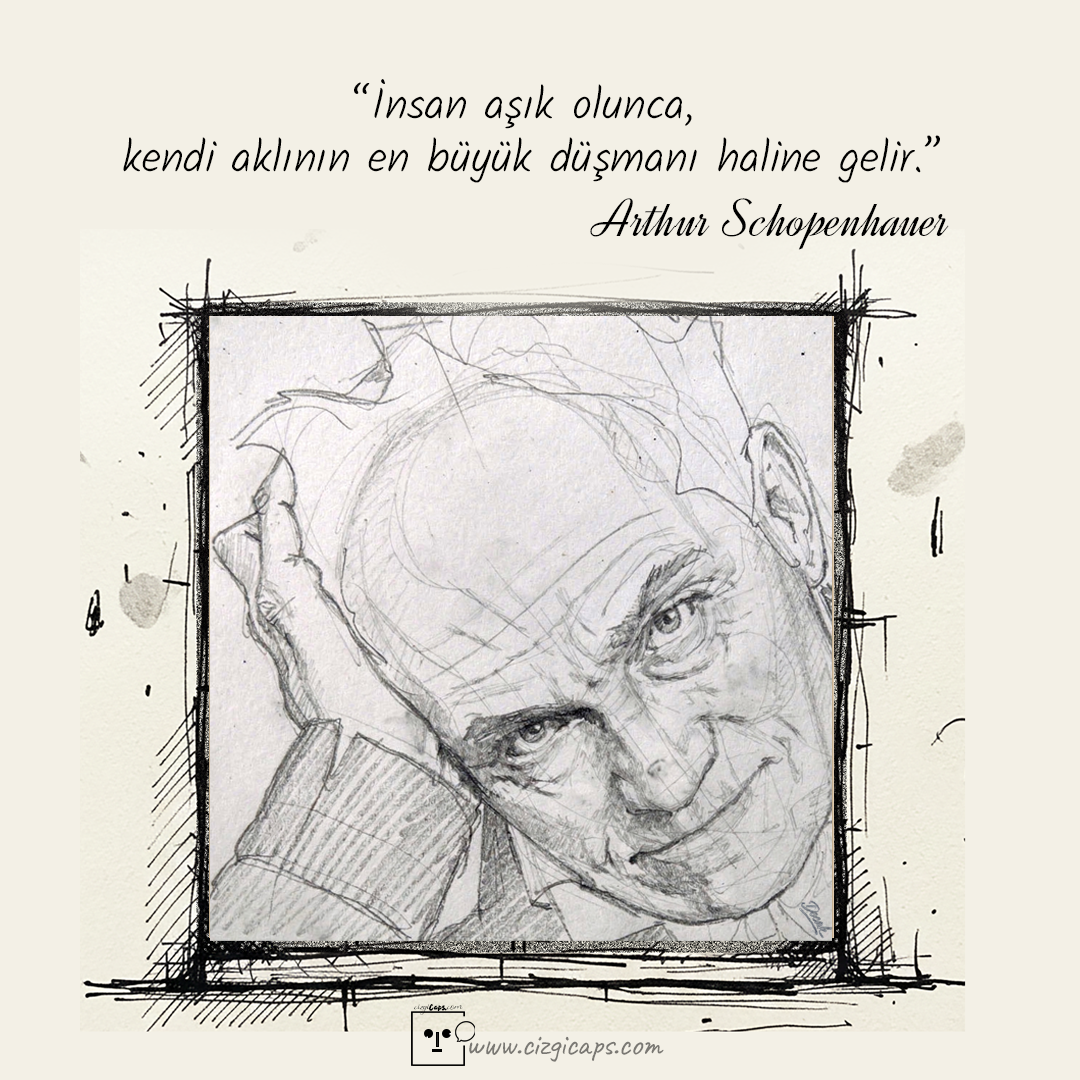 “İnsan aşık olunca,
kendi aklının en büyük düşmanı haline gelir.”
Arthur Schopenhauer
cizgiCaps.com
www.cizgicaps.com